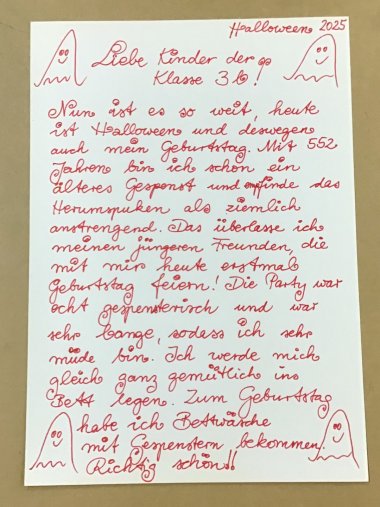 Halloween 2025
Liebe Kinder der
Klasse 3b!
Nun ist es so weit, heute
ist Halloween und deswegen
auch mein Geburtstag. Mit 552
Jahren bin ich schon ein
älteres Gespenst und empfinde das
Herumspuken als ziemlich
anstrengend. Das überlasse ich
meinen jüngeren Freunden, die
mit mir heute erstmal
Geburtstag feiern! Die Party war
echt gespenstisch und war
sehr lange, sodass ich sehr
müde bin. Ich werde mich
gleich ganz gemütlich ins
Bett legen. Zum Geburtstag
habe ich Bettwäsche
mit Gespenstern bekommen.
Richtig schön!!